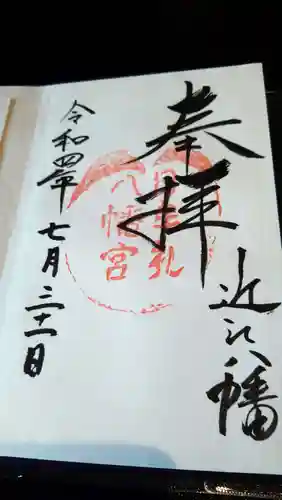 奉拝
近江八幡
日牟礼
八幡宮
令和四年
七月三十一日